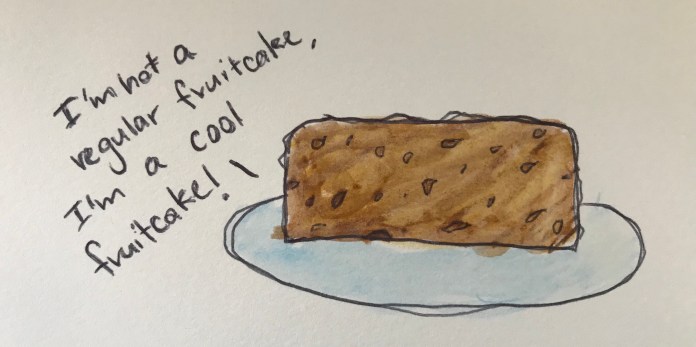 I'm not a
regular fruitcake,
I'm a cool
fruitcake!